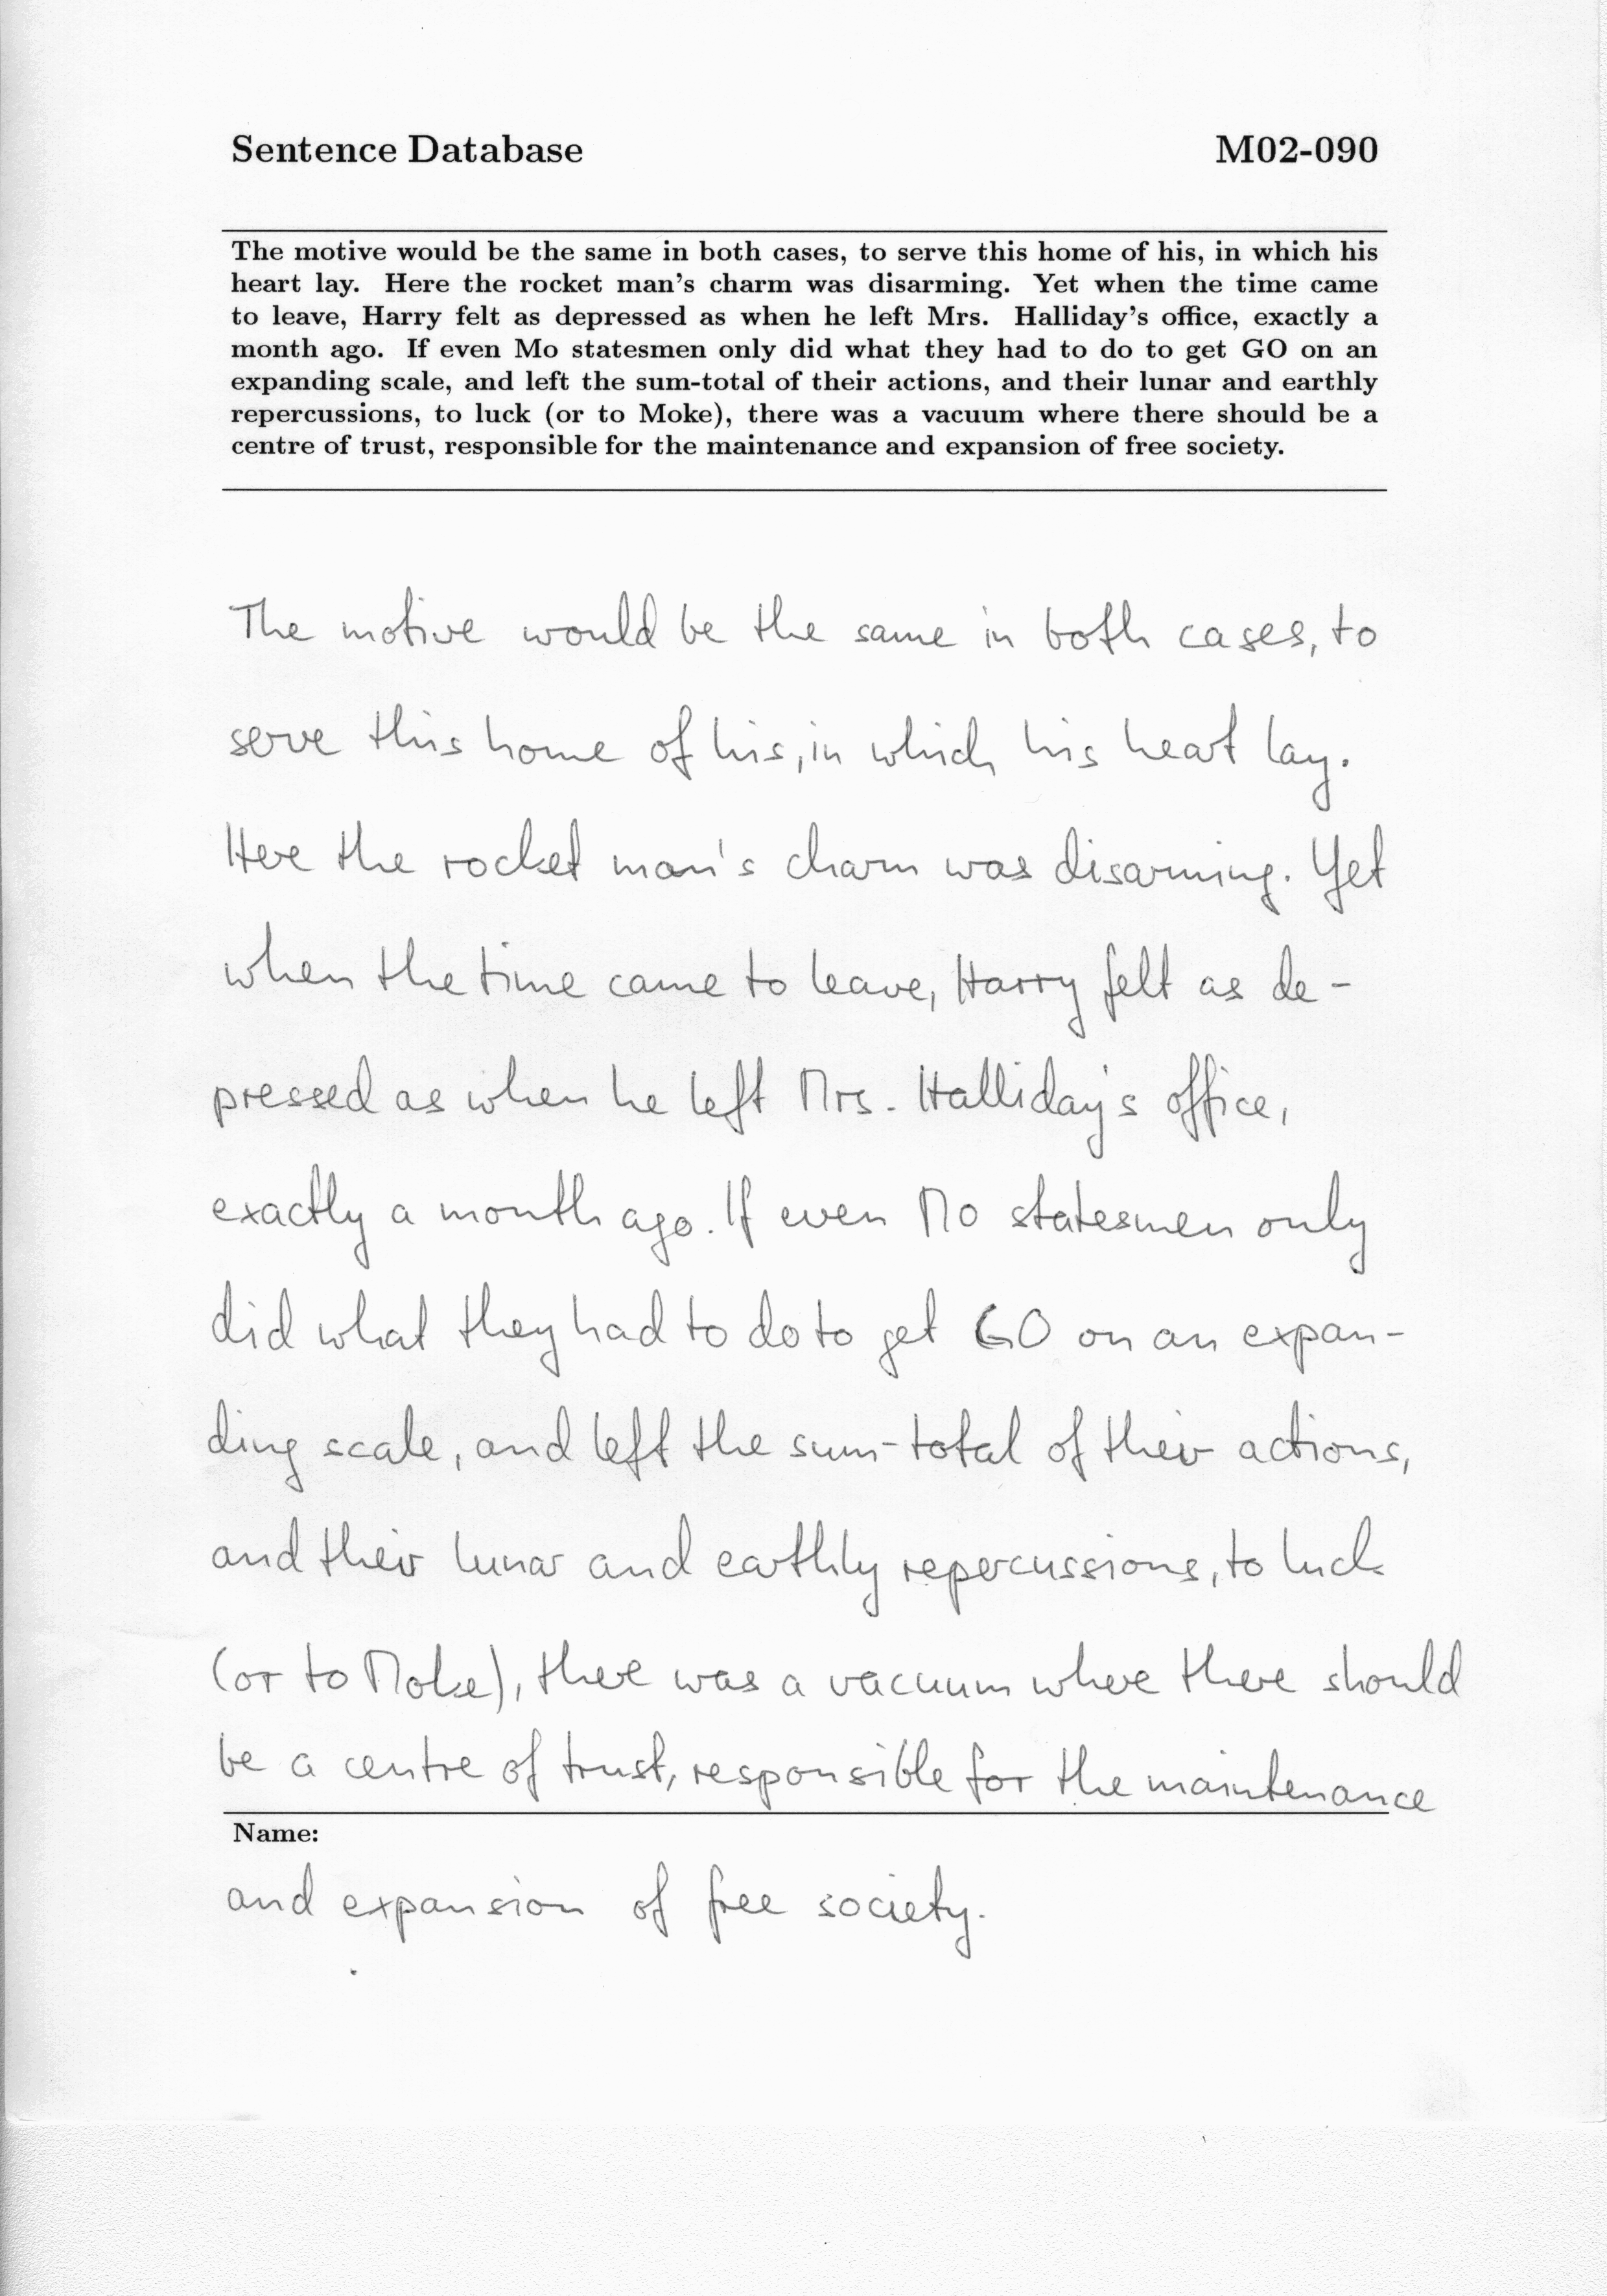 Sentence Database M02-090
The motive would be the same in both cases, to serve this home of his, in which his
heart lay. Here the rocket man's charm was disarming. Yet when the time came
to leave, Harry felt as depressed as when he left Mrs. Halliday's office, exactly a
month ago. If even Mo statesmen only did what they had to do to get GO on an
expanding scale, and left the sum-total of their actions, and their lunar and earthly
repercussions, to luck (or to Moke), there was a vacuum where there should be a
centre of trust, responsible for the maintenance and expansion of free society.
The motive would be the same in both cases, to
serve this home of his, in which his heart lay.
Here the rocket man's charm was disarming. Yet
when the time came to leave, Harry felt as de-
pressed as when he left Mrs. Halliday's office,
exactly a month ago. If even Mo statesmen only
did what they had to do to get GO on an expan-
ding scale, and left the sum-total of their actions,
and their lunar and earthly repercussions, to luck
(or to Moke), there was a vacuum where there should
be a centre of trust, responsible for the maintenance
Name:
and expansion of free society.